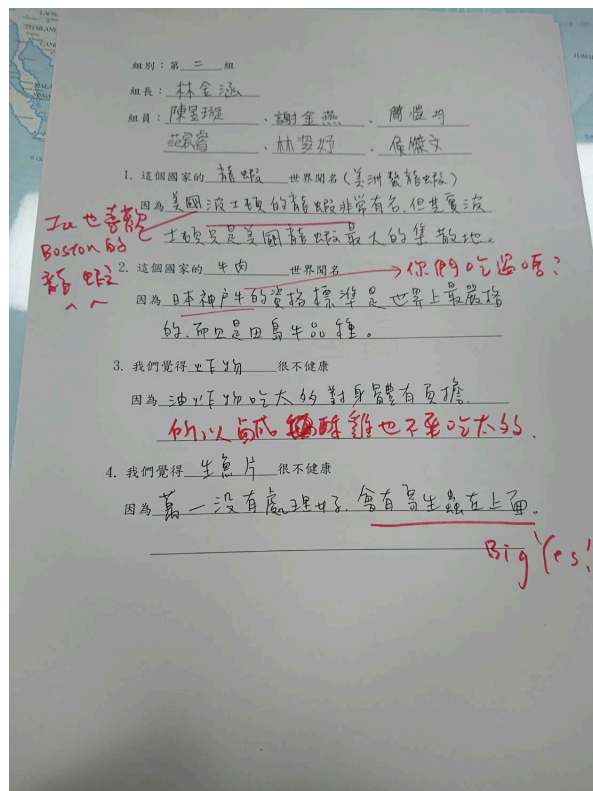 組別：第二組
組長：林金涵
組員：陳昱璇、謝金燕、簡愷均
范宸睿、林姿妤、侯傑文
1. 這個國家的龍蝦世界聞名(美洲螯龍蝦)
因為美國波士頓的龍蝦非常有名,但其實波
士頓只是美國龍蝦最大的集散地。
也喜歡
Boston的
龍蝦
^ ^
2. 這個國家的牛肉世界聞名
你們吃過嗎?
因為日本神戶牛的資格標準是世界上最嚴格
的,而且是田島牛品種。
3. 我們覺得炸物很不健康
因為油炸物吃太多對身體有負擔.
所以鹹酥雞也不要吃太多.
4. 我們覺得生魚片很不健康
因為萬一沒有處理好,會有寄生蟲在上面。
Big Yes!